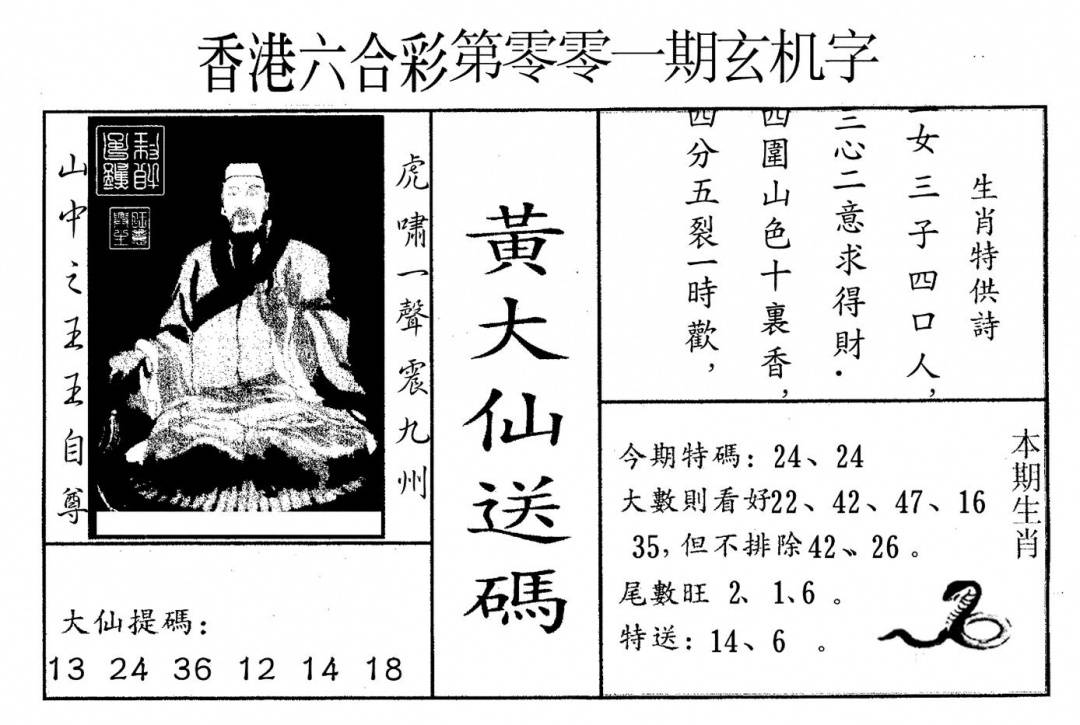 香港六合彩第零零一期玄机字
虎嘯一聲震九州
山中之王王自尊
大仙提碼：
13 24 36 12 14 18
黃大仙送碼
生肖特供詩
女三子四口人，
三心二意求得財．
四圍山色十裏香，
四分五裂一時歡，
本期生肖
今期特碼：24、24
大數則看好22、42、47、16
35，但不排除42、26。
尾數旺 2、1、6。
特送：14、6 。